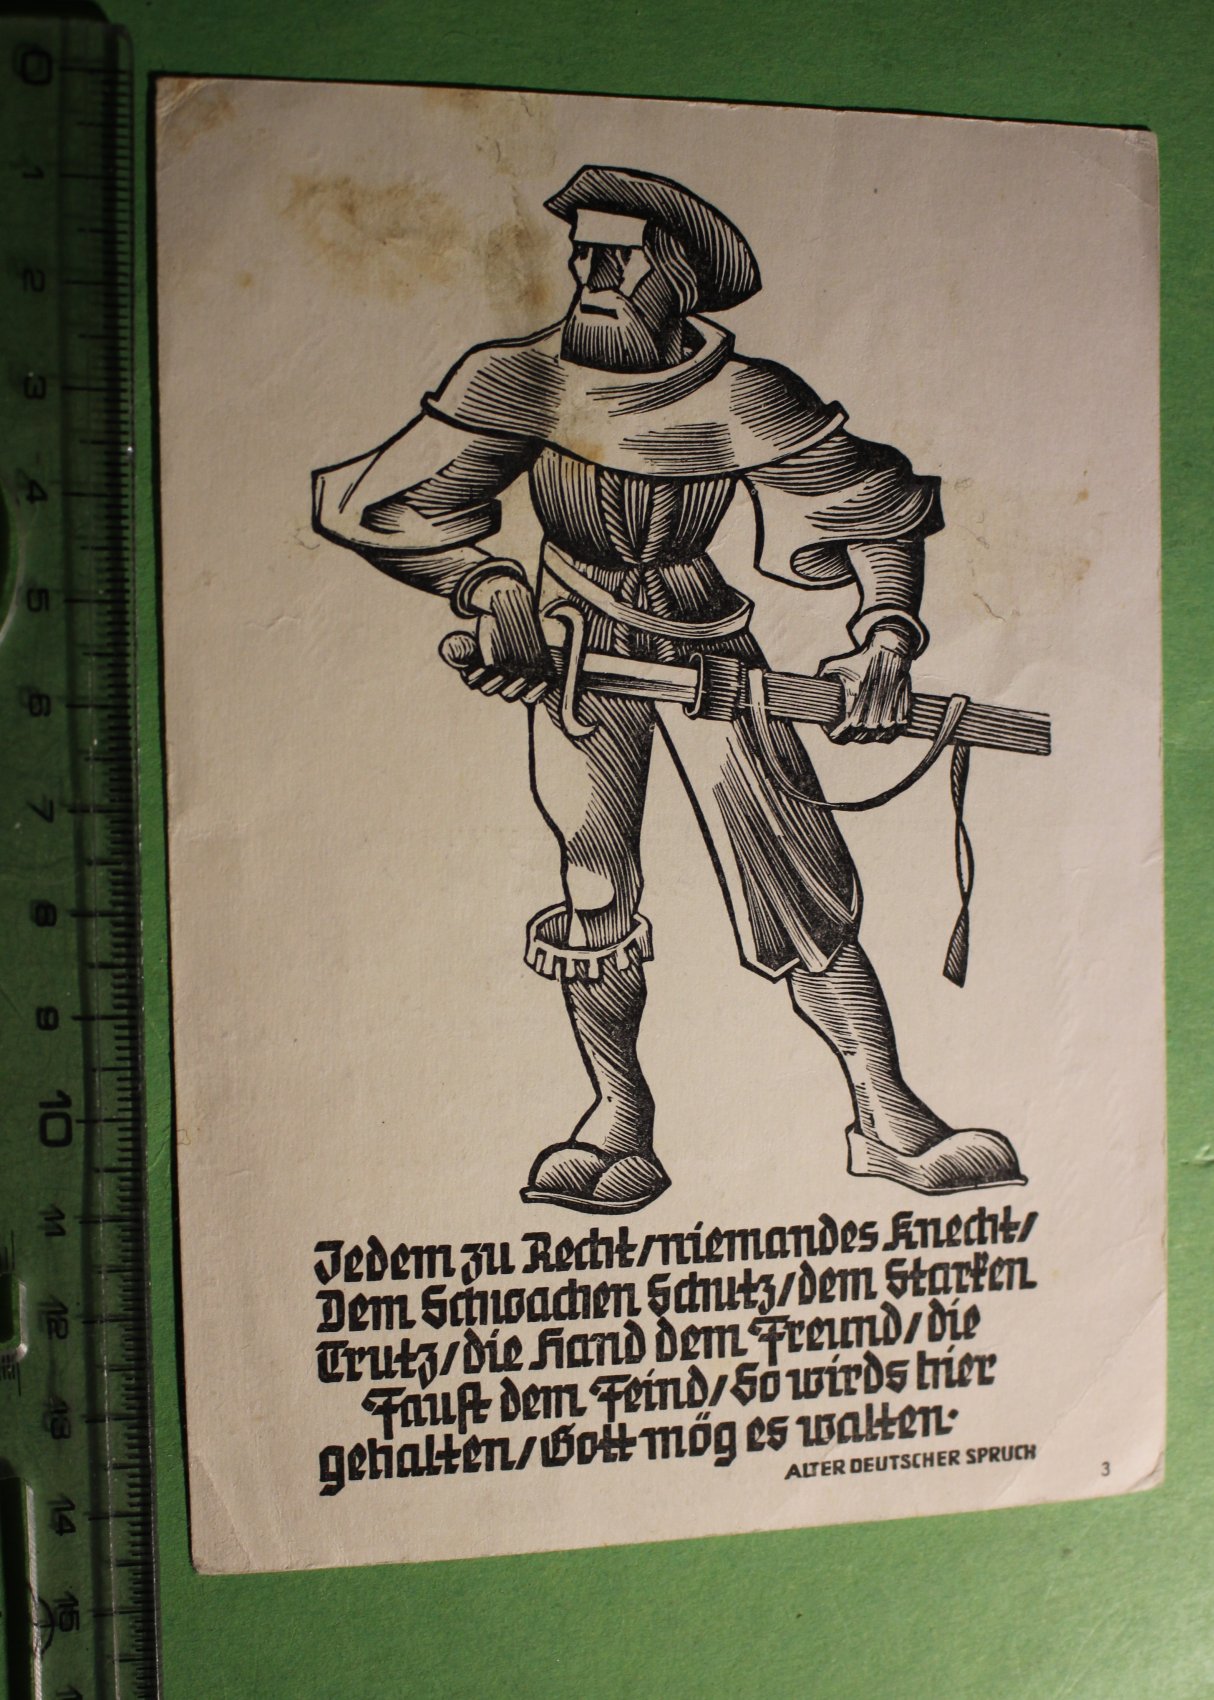 Jedem zu Recht/niemandes Knecht/
Dem Schwachen Schutz/dem Starken
Trutz/die Hand dem Freund/die
Faust dem Feind/So wirds hier
gehalten/Gott mög es walten·
ALTER DEUTSCHER SPRUCH
3
0
1
2
3
4
5
6
7
8
9
10
11
12
13
14
15